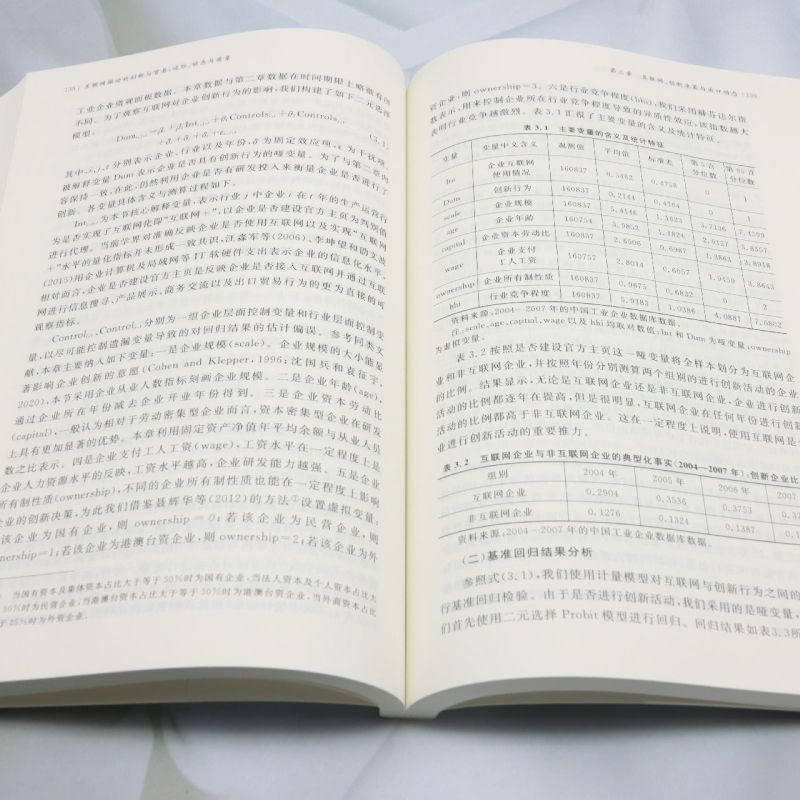 138 | 互联网驱动的创新与贸易：边际、动态与质量
工业企业微观面板数据。本章数据与第二章数据在时间期限上略微有所
不同。为了观察互联网对企业创新行为的影响，我们构建了如下二元选择
模型。
(3.1)
其中，i、j、t 分别表示企业、行业以及年份，δ 为固定效应项，ε 为干扰项。
被解释变量 Dum 表示企业是否具有创新行为的哑变量。为了与第二章内
容保持一致，在此，仍然利用企业是否有研发投入来衡量企业是否进行了
创新。各变量具体含义与测算过程如下。
为本节核心解释变量，表示行业 j 中企业 i 在 t 年的生产运营行
为是否实现了互联网化即“互联网＋”，以企业是否建设官方主页为判别值
进行代理。当前学界对准确反映企业是否使用互联网以及实现“互联网
＋”水平的量化指标并未形成一致共识，汪淼军等(2006)、李坤望和邵文波
(2015)用企业计算机及局域网等 IT 软硬件支出表示企业的信息化水平，
相对而言，企业是否建设官方主页是反映企业是否接入互联网并通过互联
网进行信息搜寻、产品展示、商务交流以及出口贸易行为的更为直接的可
观察指标。
分别为一组企业层面控制变量和行业层面控制变
量，以尽可能控制遗漏变量导致的对回归结果的估计偏误。参考同类文
献，本章主要纳入如下变量：一是企业规模(scale)。企业规模的大小能显
著影响企业创新的意愿(Cohen and Klepper，1996；沈国兵和袁征宇，
2020)，本节采用企业从业人数指标刻画企业规模。二是企业年龄(age)，
通过企业所在年份减去企业开业年份得到。三是企业资本劳动比
(capital)，一般认为相对于劳动密集型企业而言，资本密集型企业在研发
上具有更加显著的优势。本章利用固定资产净值年平均余额与从业人员
数之比表示。四是企业支付工人工资(wage)，工资水平在一定程度上是
企业人力资源水平的反映，工资水平越高，企业研发能力越强。五是企业
所有制性质(ownership)，不同的企业所有制性质也能在一定程度上影响
企业的创新决策，为此我们借鉴聂辉华等(2012)的方法①设置虚拟变量：
该企业为国有企业，则 ownership＝0；若该企业为民营企业，则
wnership＝1；若该企业为港澳台资企业，则 ownership＝2；若该企业为外
当国有资本及集体资本占比大于等于 50%时为国有企业，当法人资本及个人资本占比大
50%时为民营企业，当港澳台资本占比大于等于 50%时为港澳台资企业，当外商资本占比
于 25%时为外资企业。
第三章 互联网、创新决策与成长动态 | 139
资企业，则 ownership＝3。六是行业竞争程度(hhi)，我们采用赫芬达尔指
数表示，用来控制企业所在行业竞争程度导致的异质性效应，该指数越大
表明行业竞争越激烈。表 3.1 汇报了主要变量的含义及统计特征。
表 3.1 主要变量的含义及统计特征
变量 变量中文含义 观测值 平均值 标准差 第 5 百分位数 第 95 百分位数
Int 企业互联网使用情况 160837 0.3462 0.4758 0 1
Dum 创新行为 160837 0.2164 0.4164 0 1
scale 企业规模 160837 5.4146 1.1623 3.7136 7.4359
age 企业年龄 160754 3.9852 1.1824 2.9127 5.8557
capital 企业资本劳动比 160837 2.6506 0.6987 1.3863 3.8918
wage 企业支付工人工资 160757 2.8014 0.6057 1.9459 3.8643
ownership 企业所有制性质 160837 0.9675 0.6832 0 2
hhi 行业竞争程度 160837 5.9383 1.0386 4.0881 7.6802
资料来源：2004—2007 年的中国工业企业数据库数据。
注：scale、age、captial、wage 以及 hhi 均取对数值；Int 和 Dum 为哑变量；ownership
为虚拟变量。
表 3.2 按照是否建设官方主页这一哑变量将全样本划分为互联网企
业和非互联网企业，并按照年份分别测算两个组别的进行创新活动的企业
的比例。结果显示，无论是互联网企业还是非互联网企业，企业进行创新
活动的比例都逐年在提高，但是很明显，互联网企业在任何年份进行创新
活动的比例都高于非互联网企业。这在一定程度上说明，使用互联网是
业进行创新活动的重要推力。
表 3.2 互联网企业与非互联网企业的典型化事实(2004—2007 年)：创新企业比
组别 2004 年 2005 年 2006 年 2007
互联网企业 0.2904 0.3536 0.3753
非互联网企业 0.1276 0.1324 0.1387
资料来源：2004—2007 年的中国工业企业数据库数据。
(二) 基准回归结果分析
参照式(3.1)，我们使用计量模型对互联网与创新行为之间的
行基准回归检验。由于是否进行创新活动，我们采用的是哑变量，
们首先使用二元选择 Probit 模型进行回归。回归结果如表3.3所